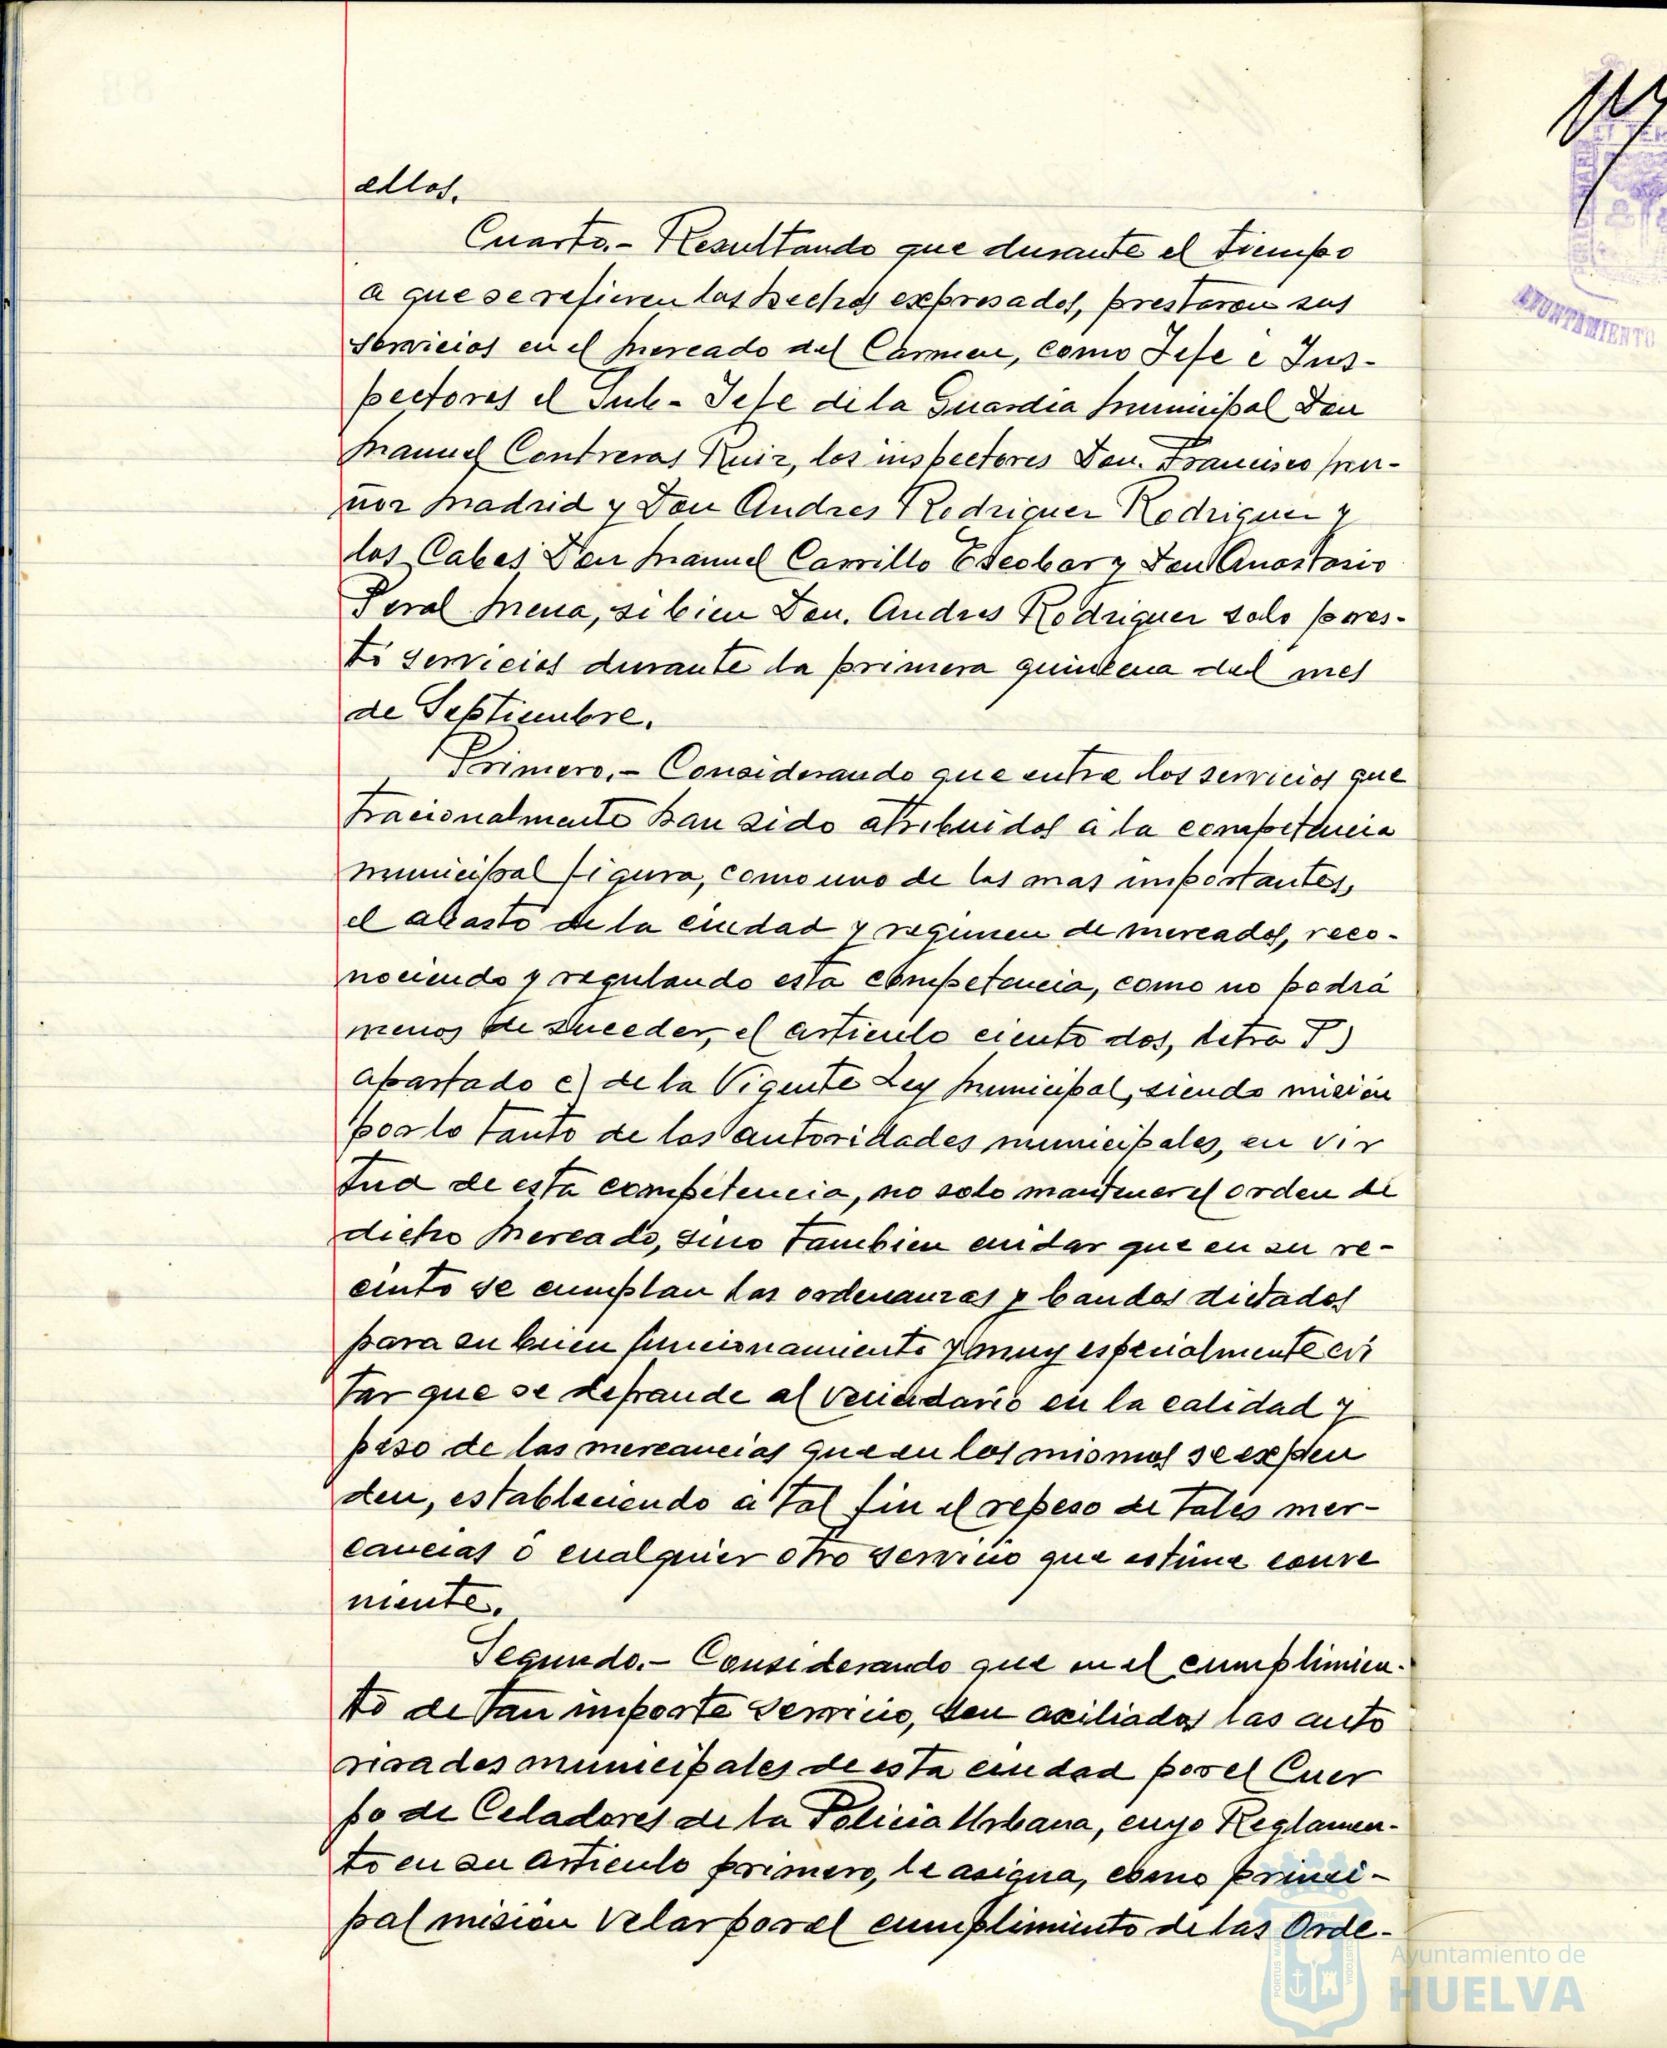 ellos.
Cuarto.- Resultando que durante el tiempo
a que se refieren los hechos expresados, prestaron sus
servicios en el Mercado del Carmen, como Jefe e Ins-
pectores el Sub-Jefe de la Guardia Municipal Don
Manuel Contreras Ruiz, los inspectores Don. Francisco Mu-
ñoz Madrid y Don Andres Rodriguez Rodriguez y
los Cabos Don Manuel Carrillo Escobar y Don Anastasio
Peral Mena, si bien Don. Andres Rodriguez solo pres-
tó servicios durante la primera quincena del mes
de Septiembre.
Primero.- Considerando que entre los servicios que
tracionalmente han sido atribuidos a la competencia
municipal figura, como uno de los mas importantes,
el abasto de la ciudad y regimen de mercados, reco-
nociendo y regulando esta competencia, como no podrá
menos de suceder, el articulo ciento dos, letra P)
apartado c) de la Vigente Ley Municipal, siendo misión
por lo tanto de las autoridades municipales, en vir
tud de esta competencia, no solo mantener el orden de
dicho Mercado, sino tambien cuidar que en su re-
cinto se cumplan las ordenanzas y bandos dictados
para su buen funcionamiento y muy especialmente evi
tar que se defraude al vecindario en la calidad y
peso de las mercancias que en los mismos se expen
den, estableciendo a tal fin el repeso de tales mer-
cancias o cualquier otro servicio que estime conve
niente.
Segundo.- Considerando que en el cumplimien-
to de tan importe servicio, son axiliados las auto
ridades municipales de esta ciudad por el Cuer
po de Celadores de la Policia Urbana, cuyo Reglamen-
to en su articulo primero, le asigna, como princi-
pal misión velar por el cumplimiento de las Orde-
AYUNTAMIENTO
Ayuntamiento de
HUELVA